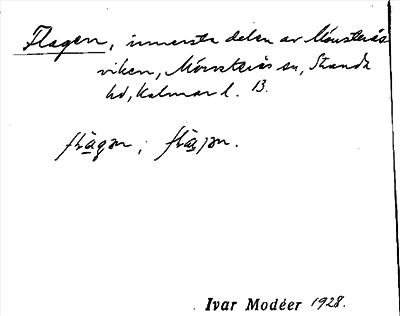 Flagen, innersta delen av Mönsterås
viken, Mönsterås sn, Strands
hd, Kalmar l. 13.
flāgən; flājən.
Ivar Modéer 1928.